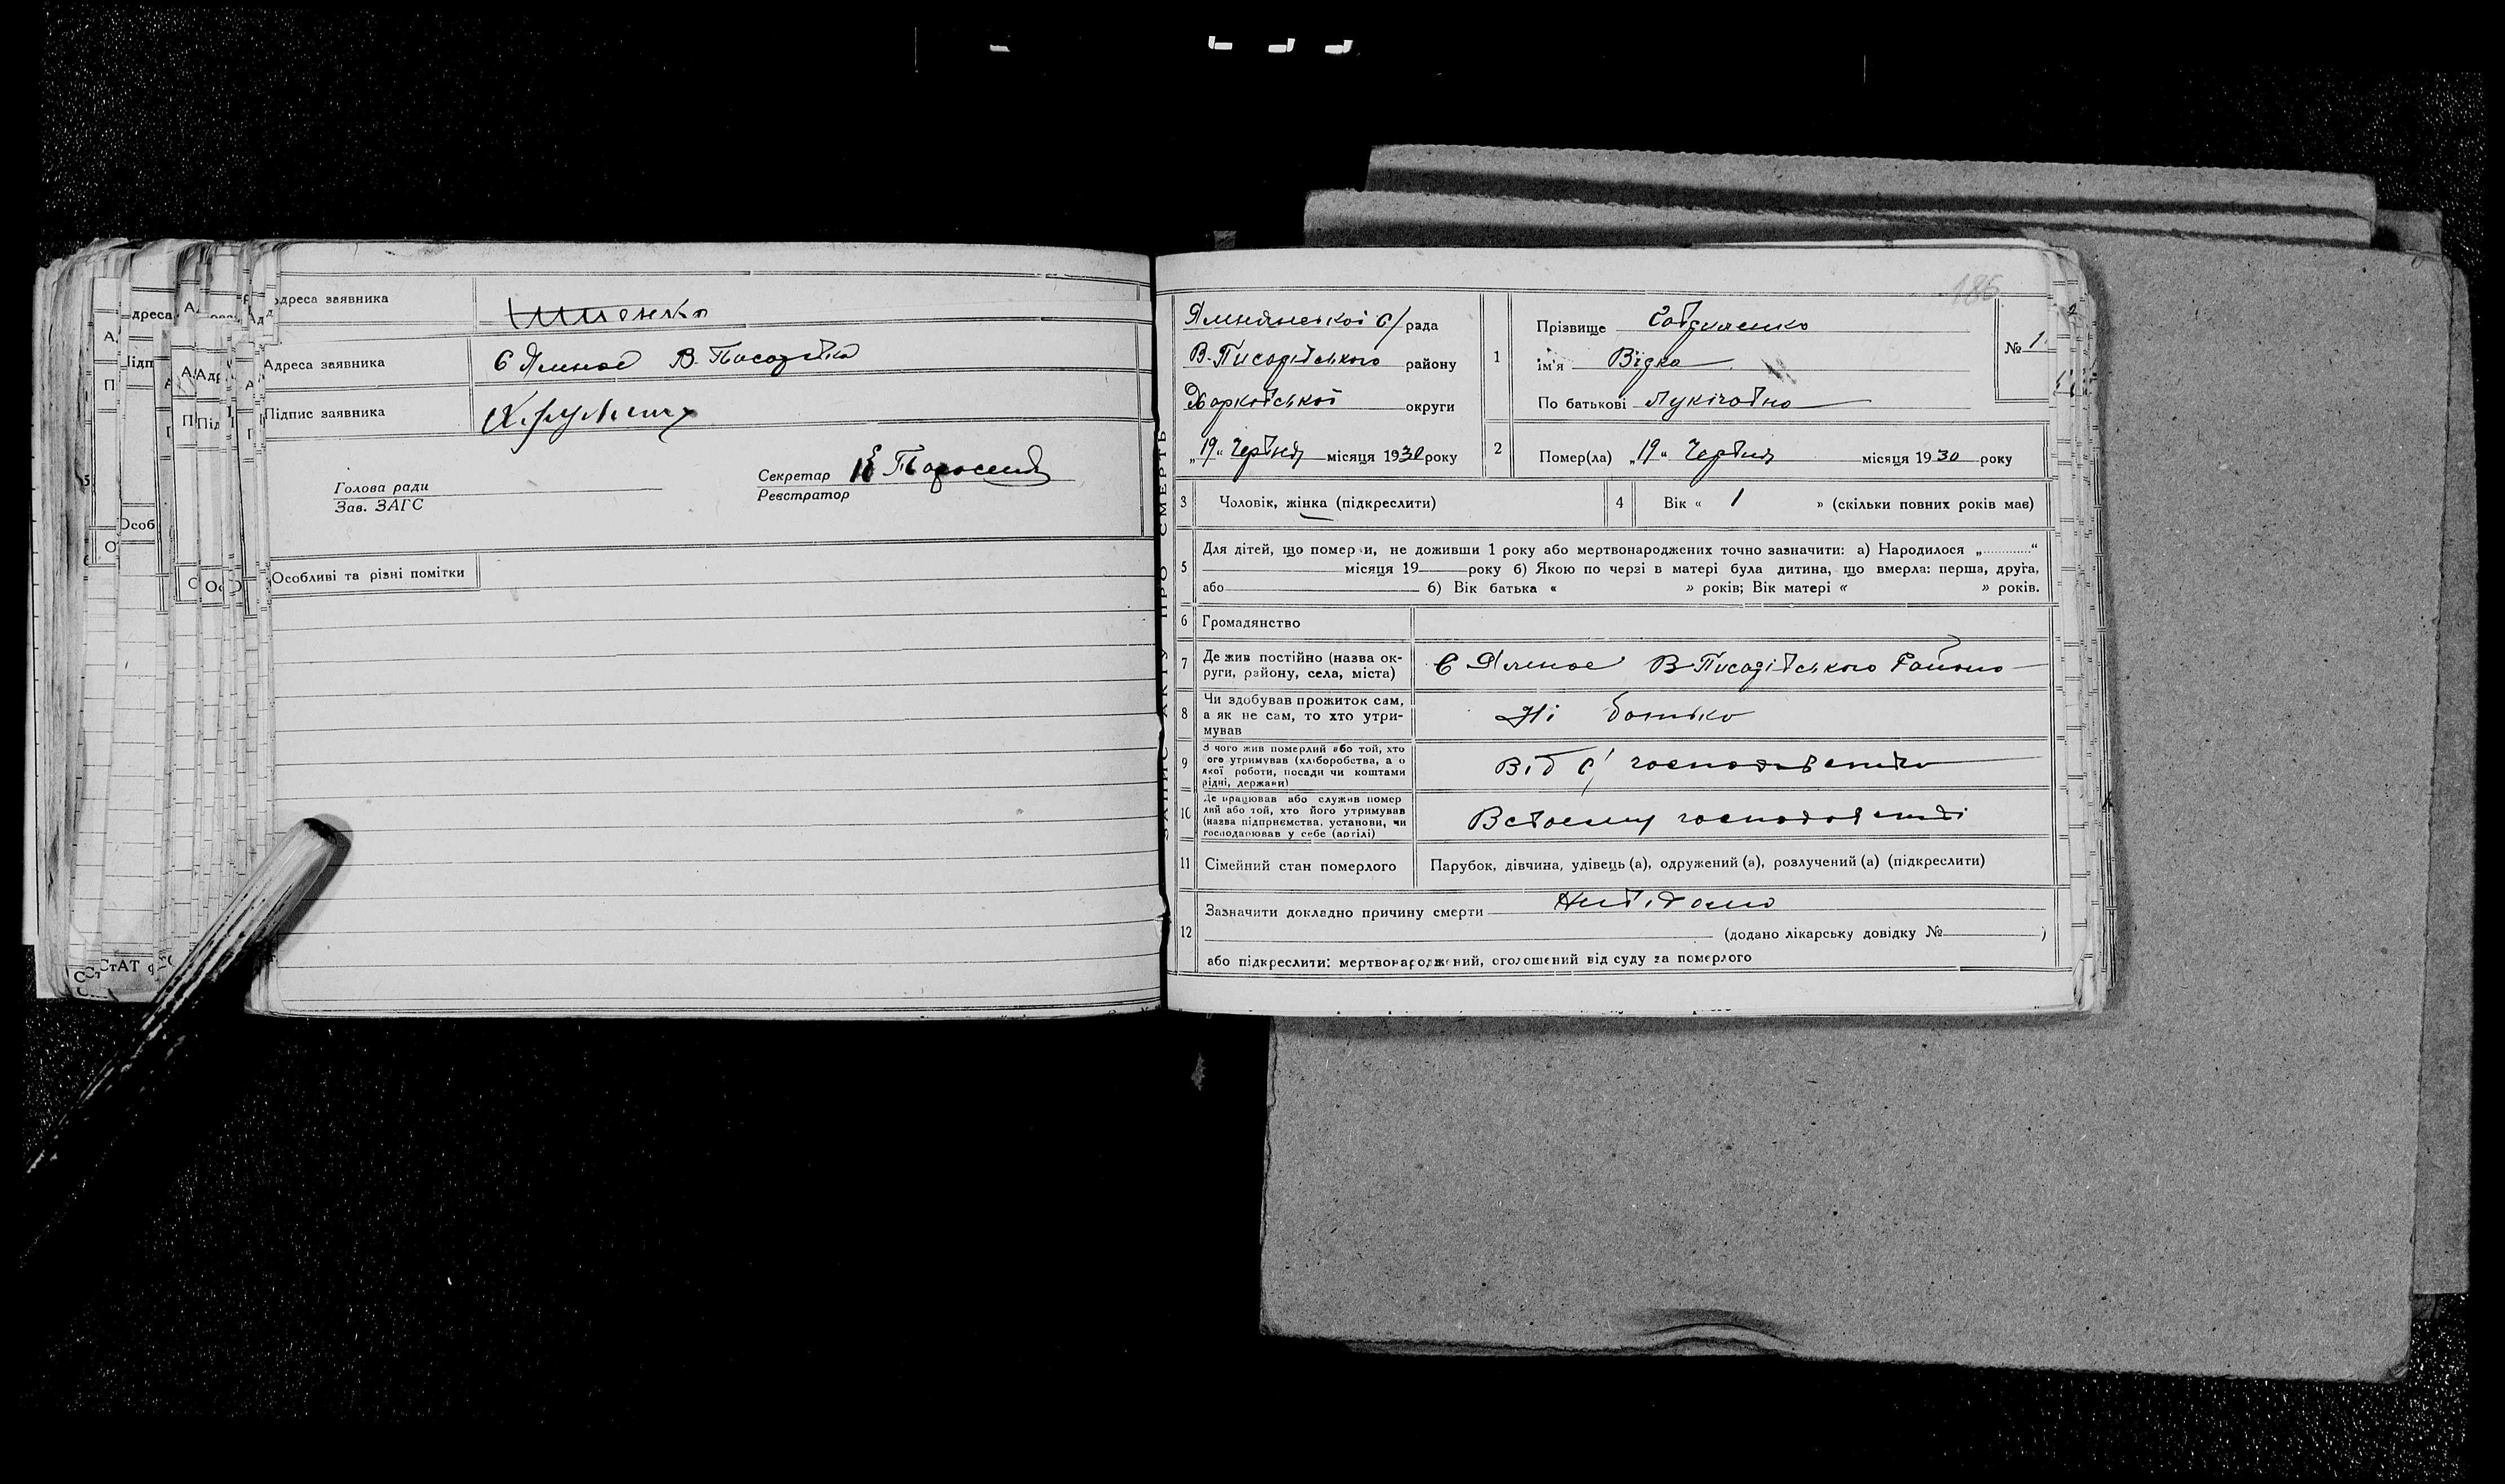 адреса заявника
Адреса заявника С Ямное В-Писарівка
Підпис заявника
Голова ради
Зав. ЗАГС
Секретар
Реєстратор
Особливі та різні помітки
185
ЗАПИС АКТУ ПРО СМЕРТЬ
Ямнянської С/рада
В-Писарівського району
Харківської округи
„19“ Червня місяця 1930 року
1 Прізвище
ім'я Відка
По батькові Лукічовна
№ 1
2 Помер(ла) „19“ Червня місяця 1930 року
3 Чоловік, жінка (підкреслити)
4 Вік « 1 » (скільки повних років має)
5 Для дітей, що померли, не доживши 1 року або мертвонароджених точно зазначити: а) Народилося „ “
місяця 19 року б) Якою по черзі в матері була дитина, що вмерла: перша, друга,
або б) Вік батька « » років; Вік матері « » років.
6 Громадянство
7 Де жив постійно (назва ок-
руги, району, села, міста) С Ямное В-Писарівського Району
8 Чи здобував прожиток сам,
а як не сам, то хто утри-
мував Ні батько
9 З чого жив померлий або той, хто
ого утримував (хліборобства, а о
якої роботи, посади чи коштами
рідні, держави) Від С/ господарства
10 Де працював або служив помер
лий або той, хто його утримував
(назва підприємства, установи, чи
господарював у себе (артілі) Всвоєму господарстві
11 Сімейний стан померлого Парубок, дівчина, удівець (а), одружений (а), розлучений (а) (підкреслити)
12 Зазначити докладно причину смерти Невідомо
(додано лікарську довідку № )
або підкреслити: мертвонароджений, оголошений від суду за померлого